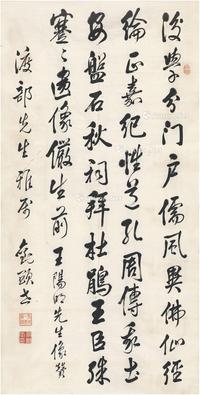 後學分門戶儒風異佛仙經
綸正嘉紀性道孔周傳土
安盤石秋祠拜杜鵑王臣殊
蹇々遺像儼生前 王陽明先生像贊
渡部先生雅屬